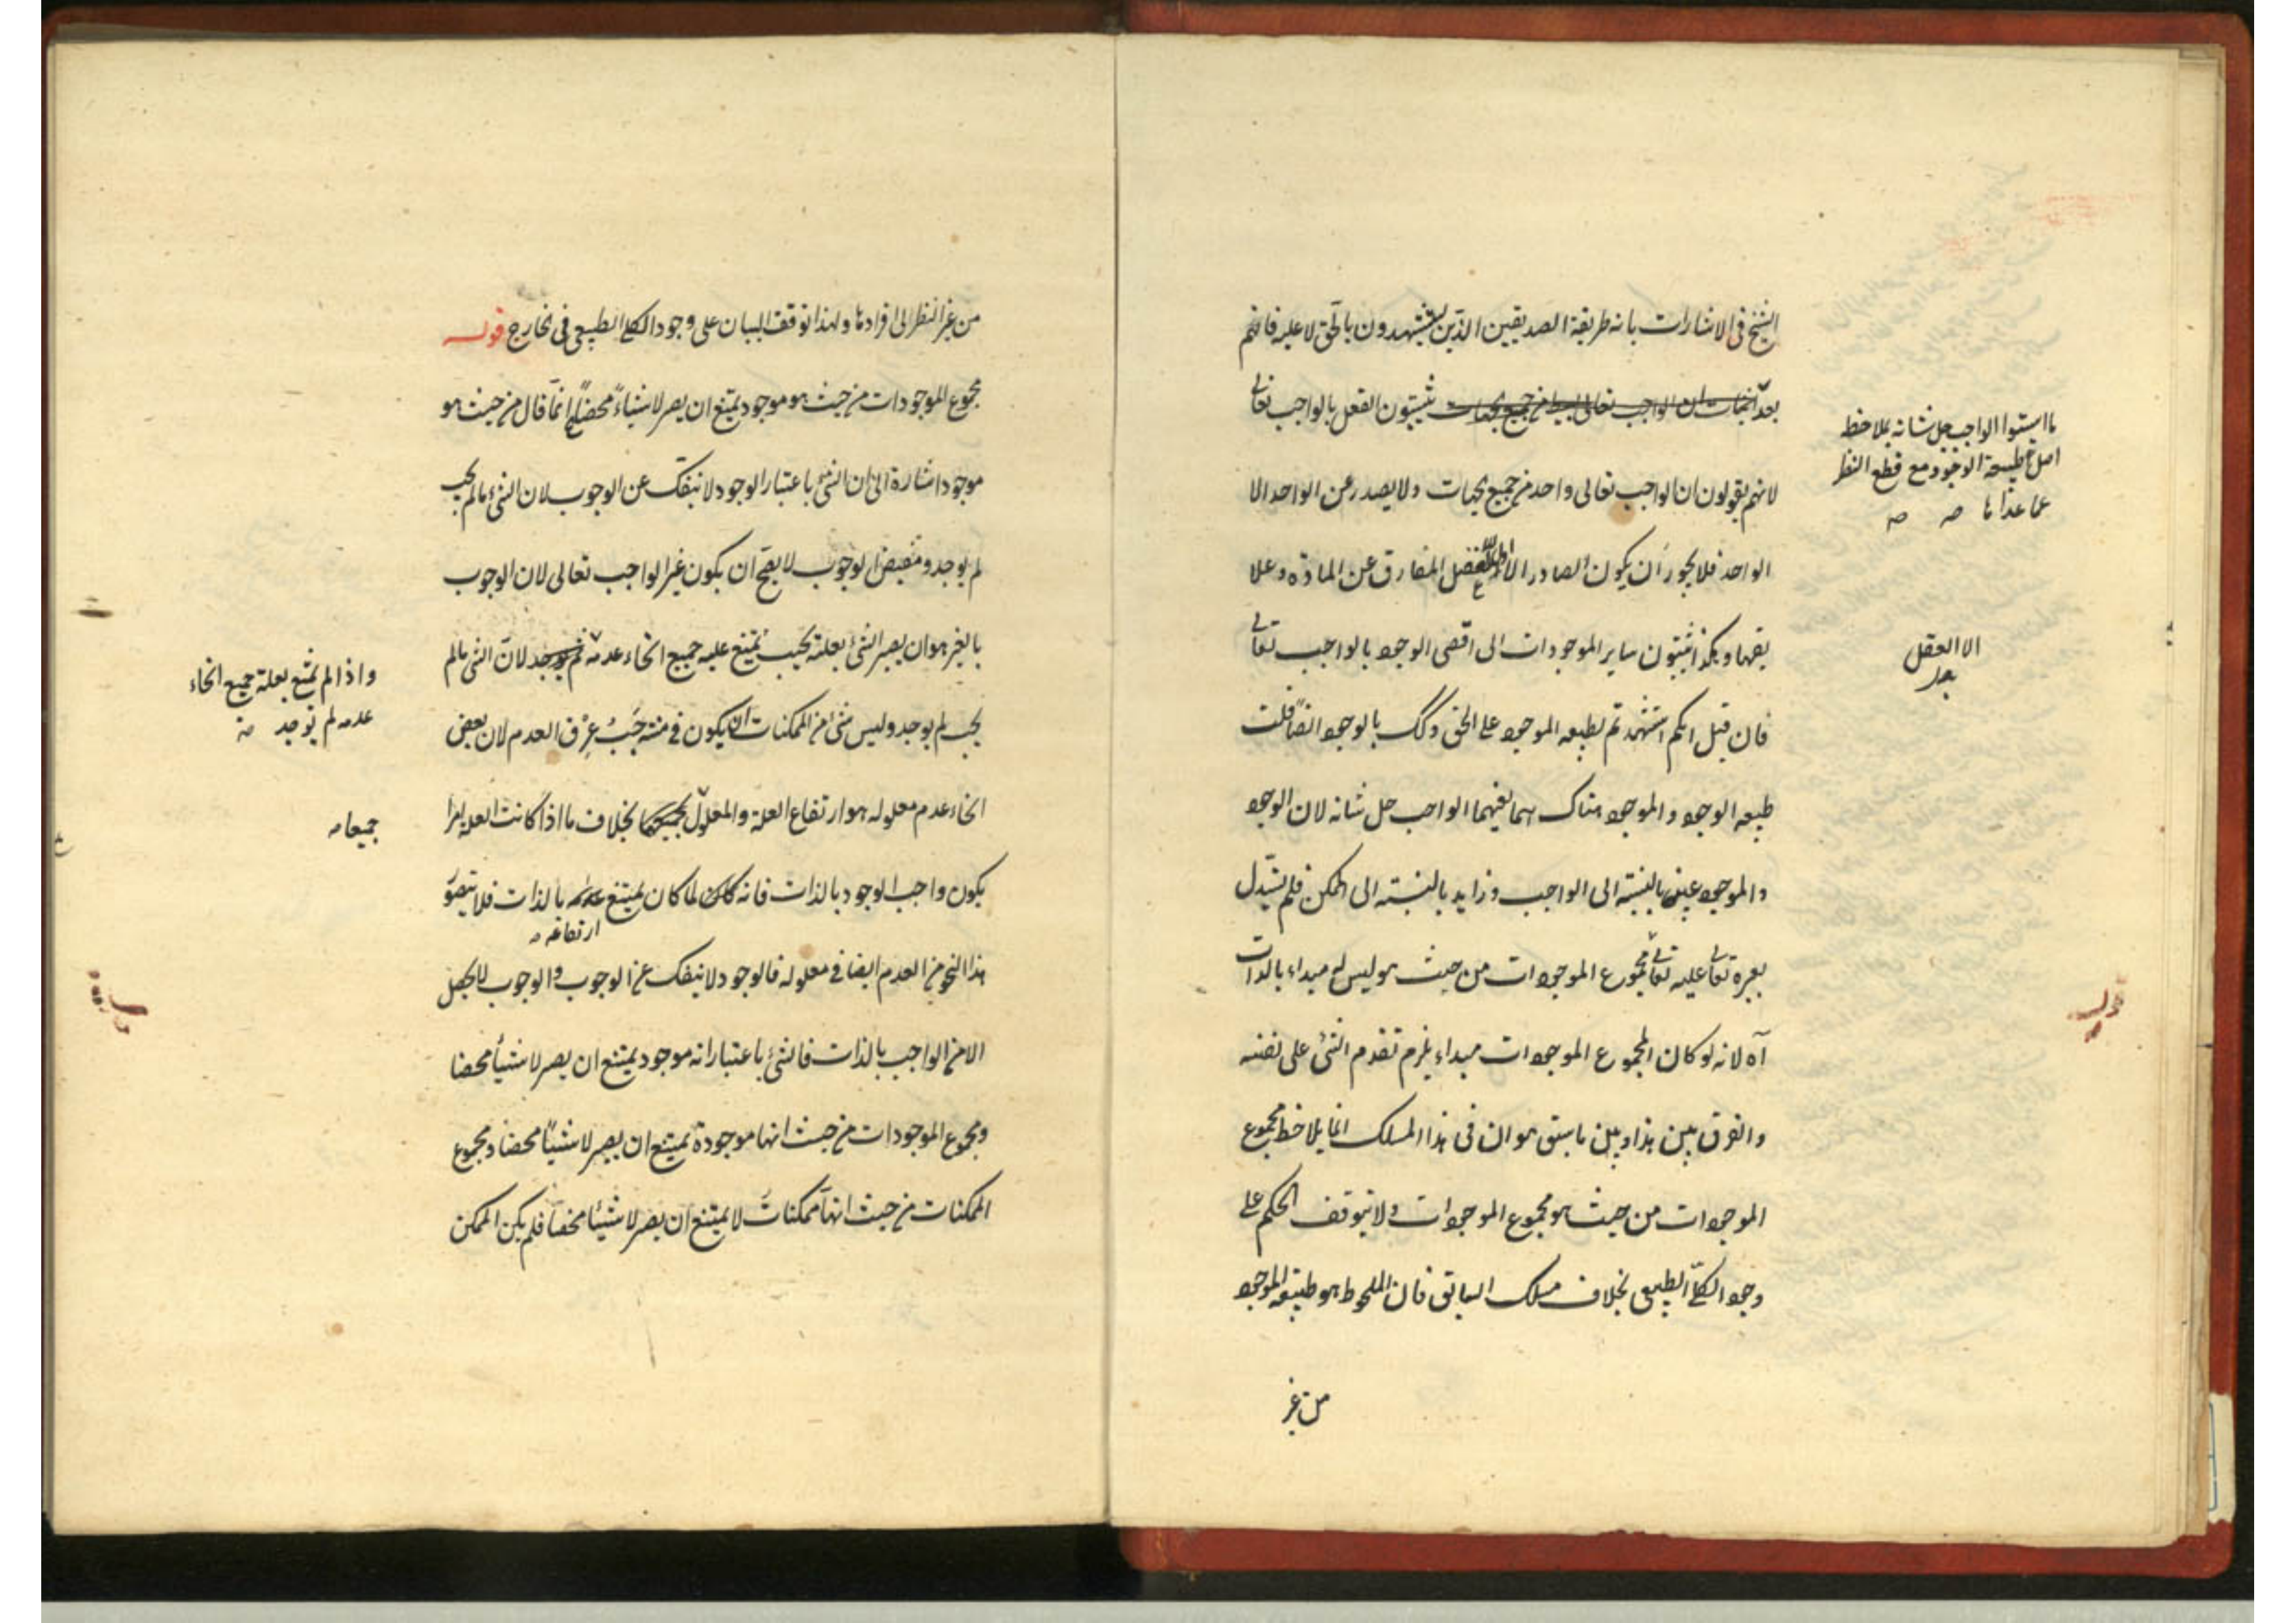 الشيخ فى الاشارات بانه طريقة الصديقين الذين يستشهدون بالحق لا عليه فانهم
بعد اثبات ان الواجب تعالى البسيط من جميع الجهات يثبتون العقل بالواجب تعالى
لانهم يقولون ان الواجب تعالى واحد من جميع الجهات ولا يصدر عن الواحد الا
الواحد فلا يجوز ان يكون الصادر الاول المفارق عن المادة وعلا
يقها وهكذا يثبتون ساير الموجودات الى اقصى الوجود بالواجب تعالى
فان قيل انكم استشهدتم بطبيعه الموجود على الحق وكك بالوجود ايضا قلت
طبيعه الوجود والموجود هناك الواجب جل شانه لان الوجود
والموجود عينه بالنسبة الى الواجب وزايد بالنسبته الى الممكن فلم يستدل
بغيره تعالى عليه تعالى مجموع الموجودات من حيث هو ليس له مبداء بالذات
آه لانه لو كان لمجموع الموجودات مبداء يلزم تقدم الشئ على نفسه
والفرق بين هذا وبين ما سبق هو ان فى هذا المسلك انما يلاحظ مجموع
الموجودات من حيث هو مجموع الموجودات ولا يتوقف الحكم على
وجود الكلى الطبيعى بخلاف مسلك السابق فان الملحوظ هو طبيعة الموجود
من غير
ما استبوا الواجب جل شانه بملاحظ
اصل طبيعة الوجود مع قطع النظر
عما عداها صه صه
الا العقل
قوله
من غير النظر الى افرادها ولهذا توقف البيان على وجود الكلى الطبيعى فى الخارج قوله
مجموع الموجودات من حيث هو موجود يمتنع ان يصير لا شيئاً محضاً انما قال من حيث هو
موجود اشارة الى ان الشئ باعتبار الوجود لا ينفك عن الوجوب لان الشئ ما لم يجب
لم يوجد ومفيض الوجوب لا يصح ان يكون غير الواجب تعالى لان الوجوب
بالغير هو ان يصير الشئ بعلته بحيث يمتنع عليه جميع انحاء عدمه لان الشئ ما لم
يجب لم يوجد وليس شئ من الممكنات ان يكون فى منته العدم لان بعض
انحاء عدم معلوله هو ارتفاع العلة والمعلول بجميعهما بخلاف ما اذا كانت العلة امرا
يكون واجب الوجود بالذات فانه لما كان يمتنع عدمه بالذات فلا يتصور
ارتفاعه صه
هذا النحو من العدم ايضا فى معلوله فالوجود لا ينفك عن الوجوب والوجوب لا يحصل
الا من الواجب بالذات فالشئ باعتبار انه موجود يمتنع ان يصير لا شيئاً محضا
ومجموع الموجودات من حيث انها موجودة يمتنع ان يصير لا شيئاً محضا ومجموع
الممكنات من حيث انها ممكنات لا يمتنع ان يصير لا شيئا محضا فلم يكن الممكن
واذا لم يمتنع بعلة جميع انحاء
عدمه لم يوجد صه
جميعا صه